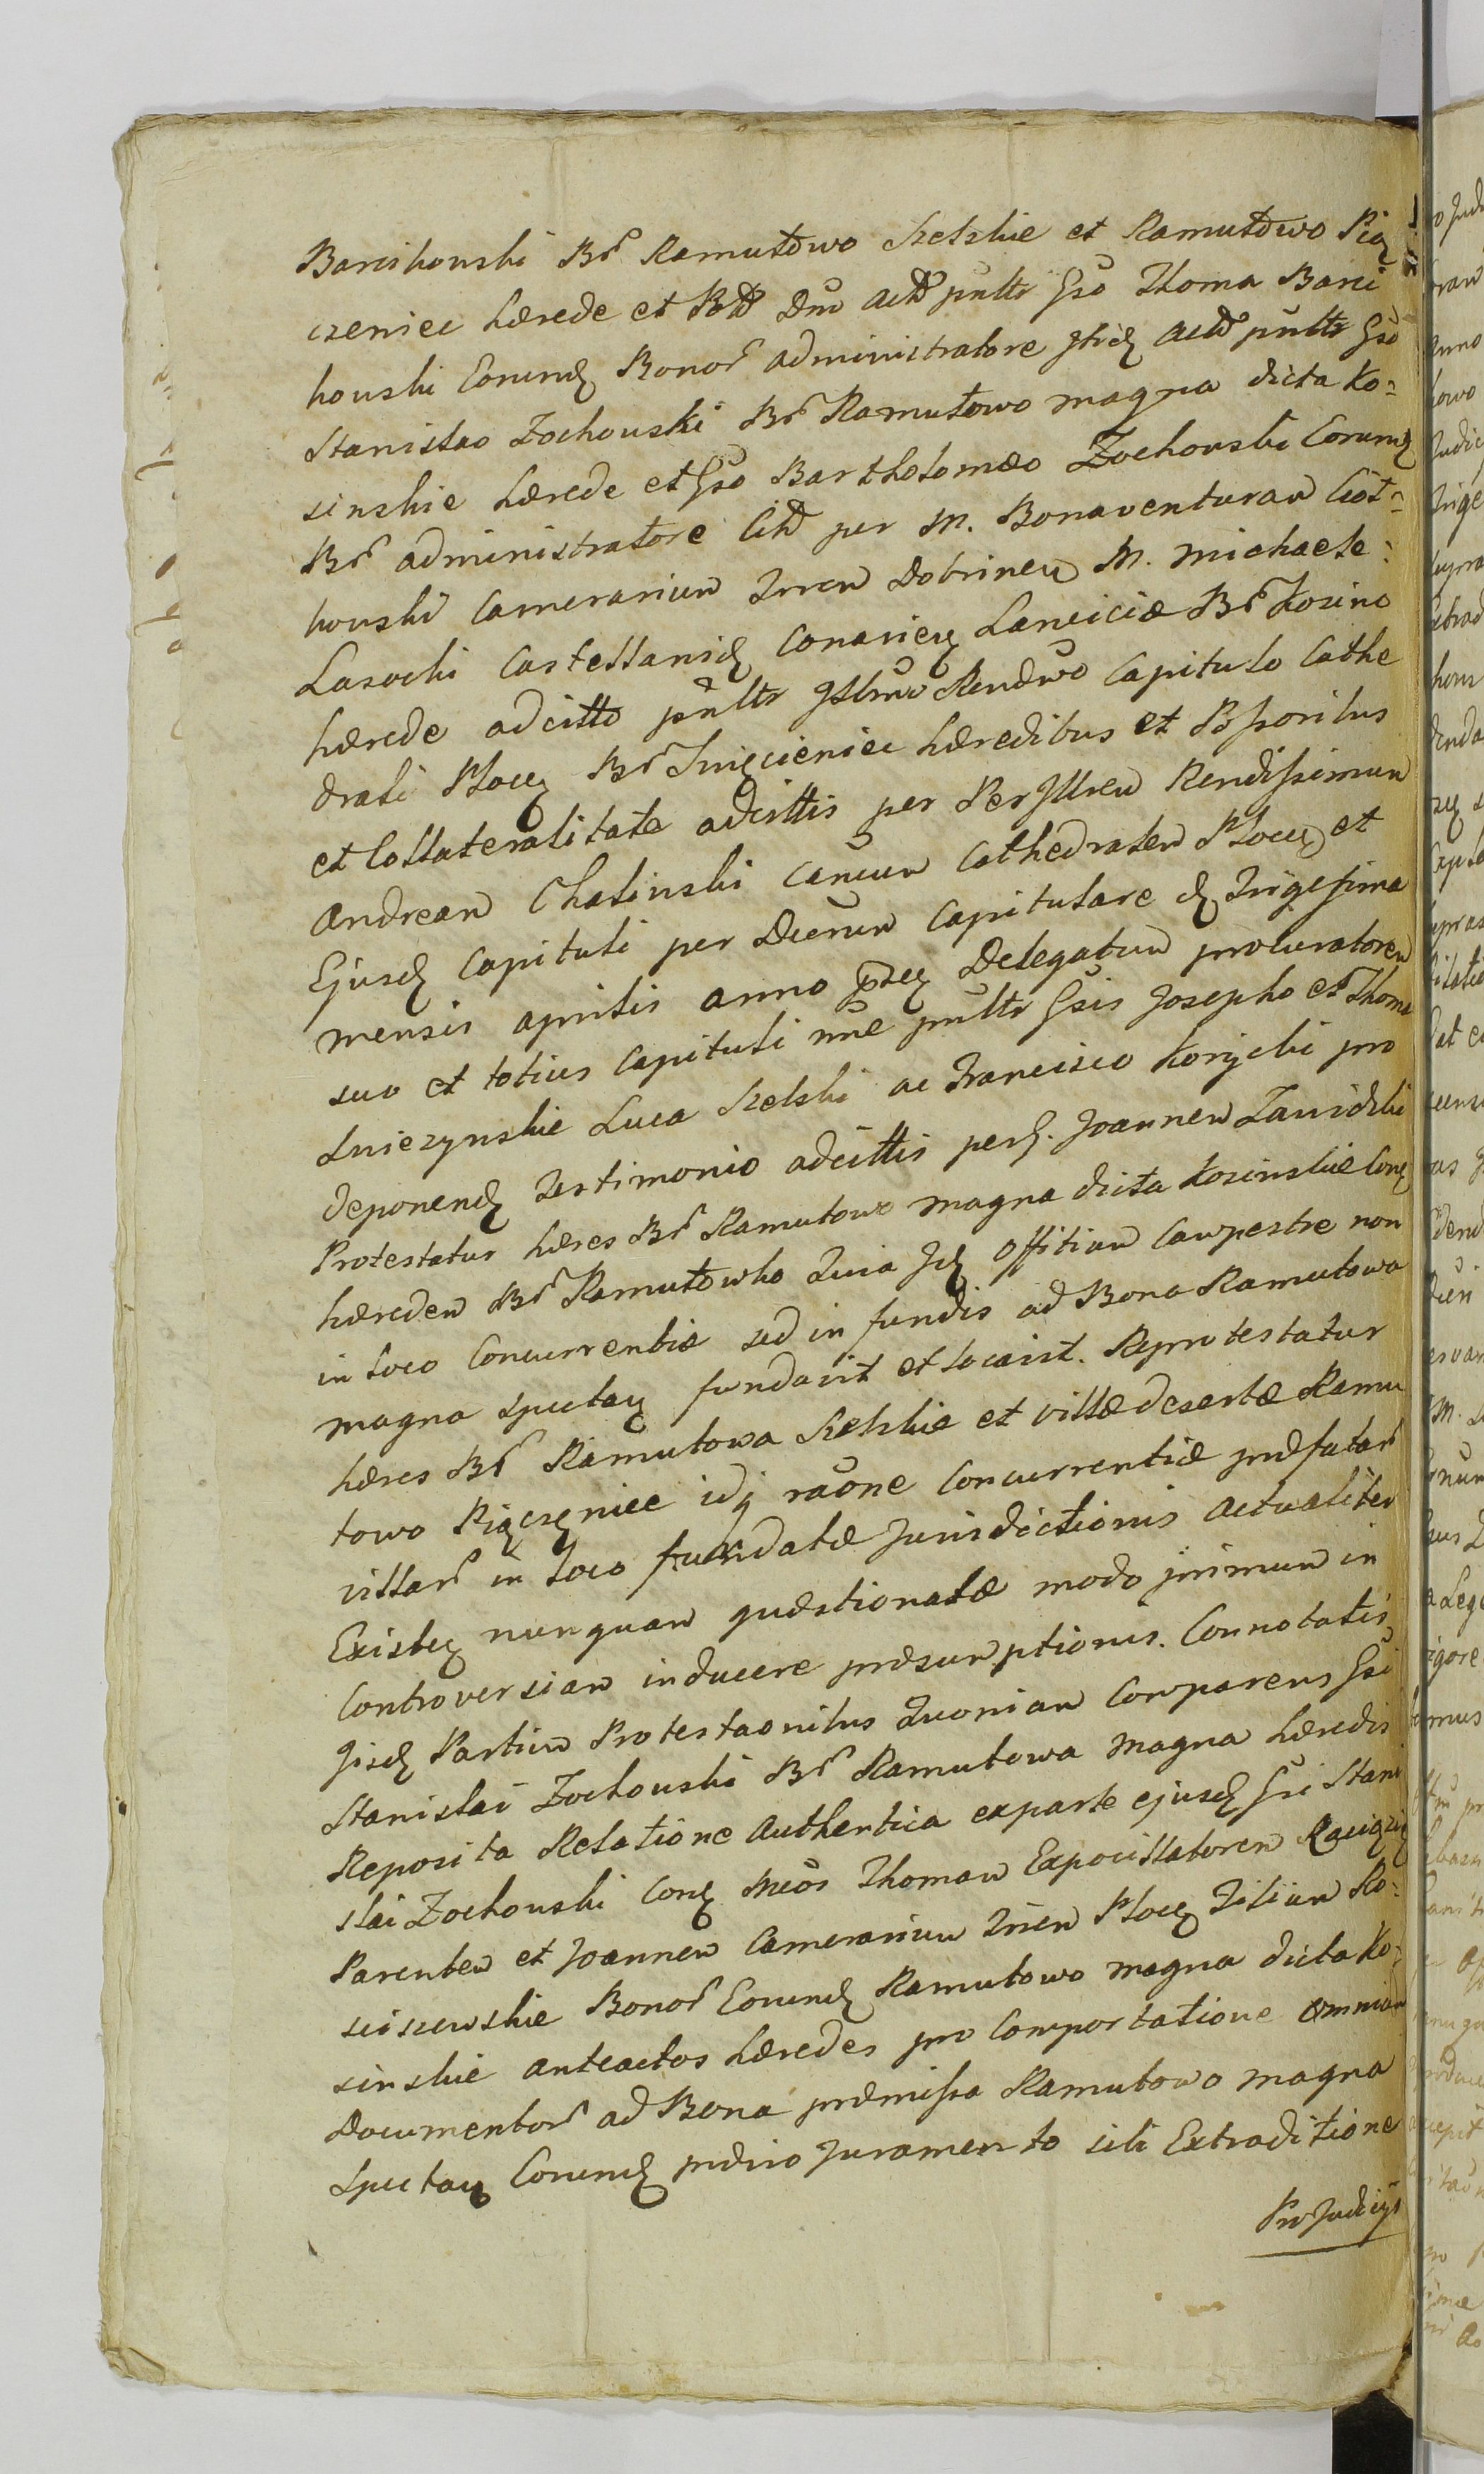 Barcikouski Br Ramutowo Szelskie et Ramutowo Pią
czeniec hærede et Dno actt pnltr Gso Thoma Barci
kouski Eorund Bonor administratore actt pnltr Gso
Stanislao Zochouski Br Ramutowo magna dicta Ko-
sinskie hærede et Gso Bartholomæo Zochouski Eorund
Br administratore Citt per M. Bonaventuram Ciot-
kouski Camerarium Trren Dobrinen M. Michaele
Lasocki Castellanid Conarien Lanciciæ Br Kozino
hærede adcitto pnltr Illmo Rendmo Capitulo Cathe
drali Plocen Br hæredibus et Possoribus
et Collateralitate adcittis per Per Illrem Rendissimum
Andream Chalinski Cancum Cathedralem Plocen et
Ejusd Capituli per Decrum Capitulare d Trigesima
mensis aprilis anno Delegatum procuratorem
suo et totius Capituli nne pnltr Gsis Josepho et Thoma
Sniezynskie Luca Szelski ac Francisco Korycki pro
deponend Testimonio adcittis perG. Joannem Zawidzki
Protestatur hæres Br Ramutowo magna dicta Kosinskie Con
hæredem Br Ramutowko Quia Jd Offitium Campestre non
in loco Concurrentiæ sed in fundis ad Bona Ramutowo
magna spectan fundavit et locavit. Reprotestatur
hæres Br Ramutowa Szelskie et villæ desertæ Ramu
towo Piączęniec idq raone Concurrentiæ præfatar
villar in loco fundatæ Jurisdictionis actualiter
Existen nunquam quæstionatæ modo primum in
Controversiam inducere præsumptionis. Connotatis
Jisd Partium Protestaonibus Quoniam Comparens Gsi
Stanislai Zochouski Br Ramutowa magna hæredis
Reposita Relatione Authentica exparte ejusd Gsi Stani
slai Zochouski Con Mcos Thomam Expocillatorem Raciązen
Parentem et Joannem Camerarium Trren Plocen Filium Ko-
sciszewskie Bonor Eorund Ramutowo magna dicta Ko-
sinskie anteactos hæredes pro Comportatione omnium
Documentor ad Bona præmissa Ramutowo magna
Spectan Eorund prævio Juramento sibi Extraditione
Pro Judicys